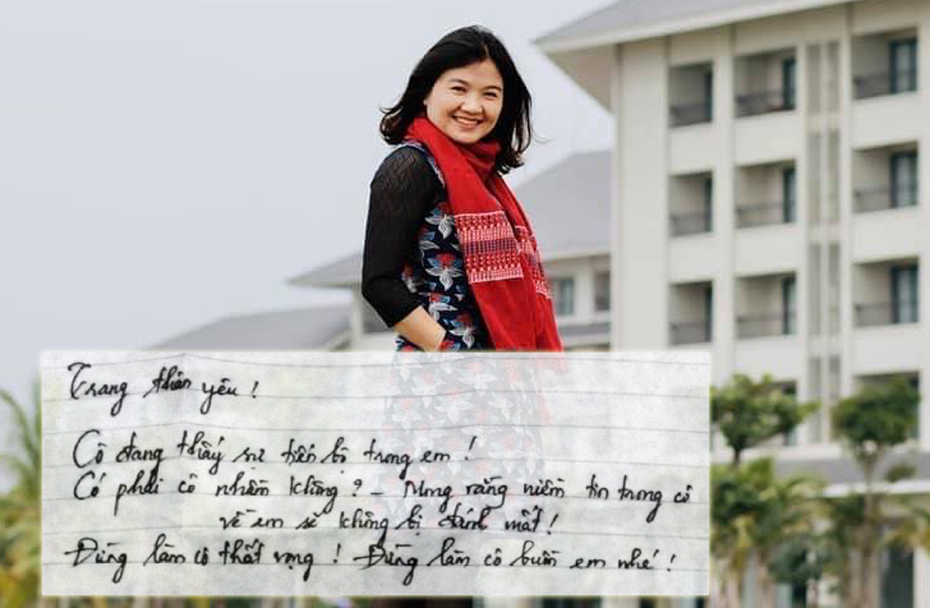 Trang thân yêu !
Cô đang thấy sự tiến bộ trong em !
Có phải cô nhầm không ? - Mong rằng niềm tin trong cô
về em sẽ không bị đánh mất !
Đừng làm cô thất vọng ! Đừng làm cô buồn em nhé !